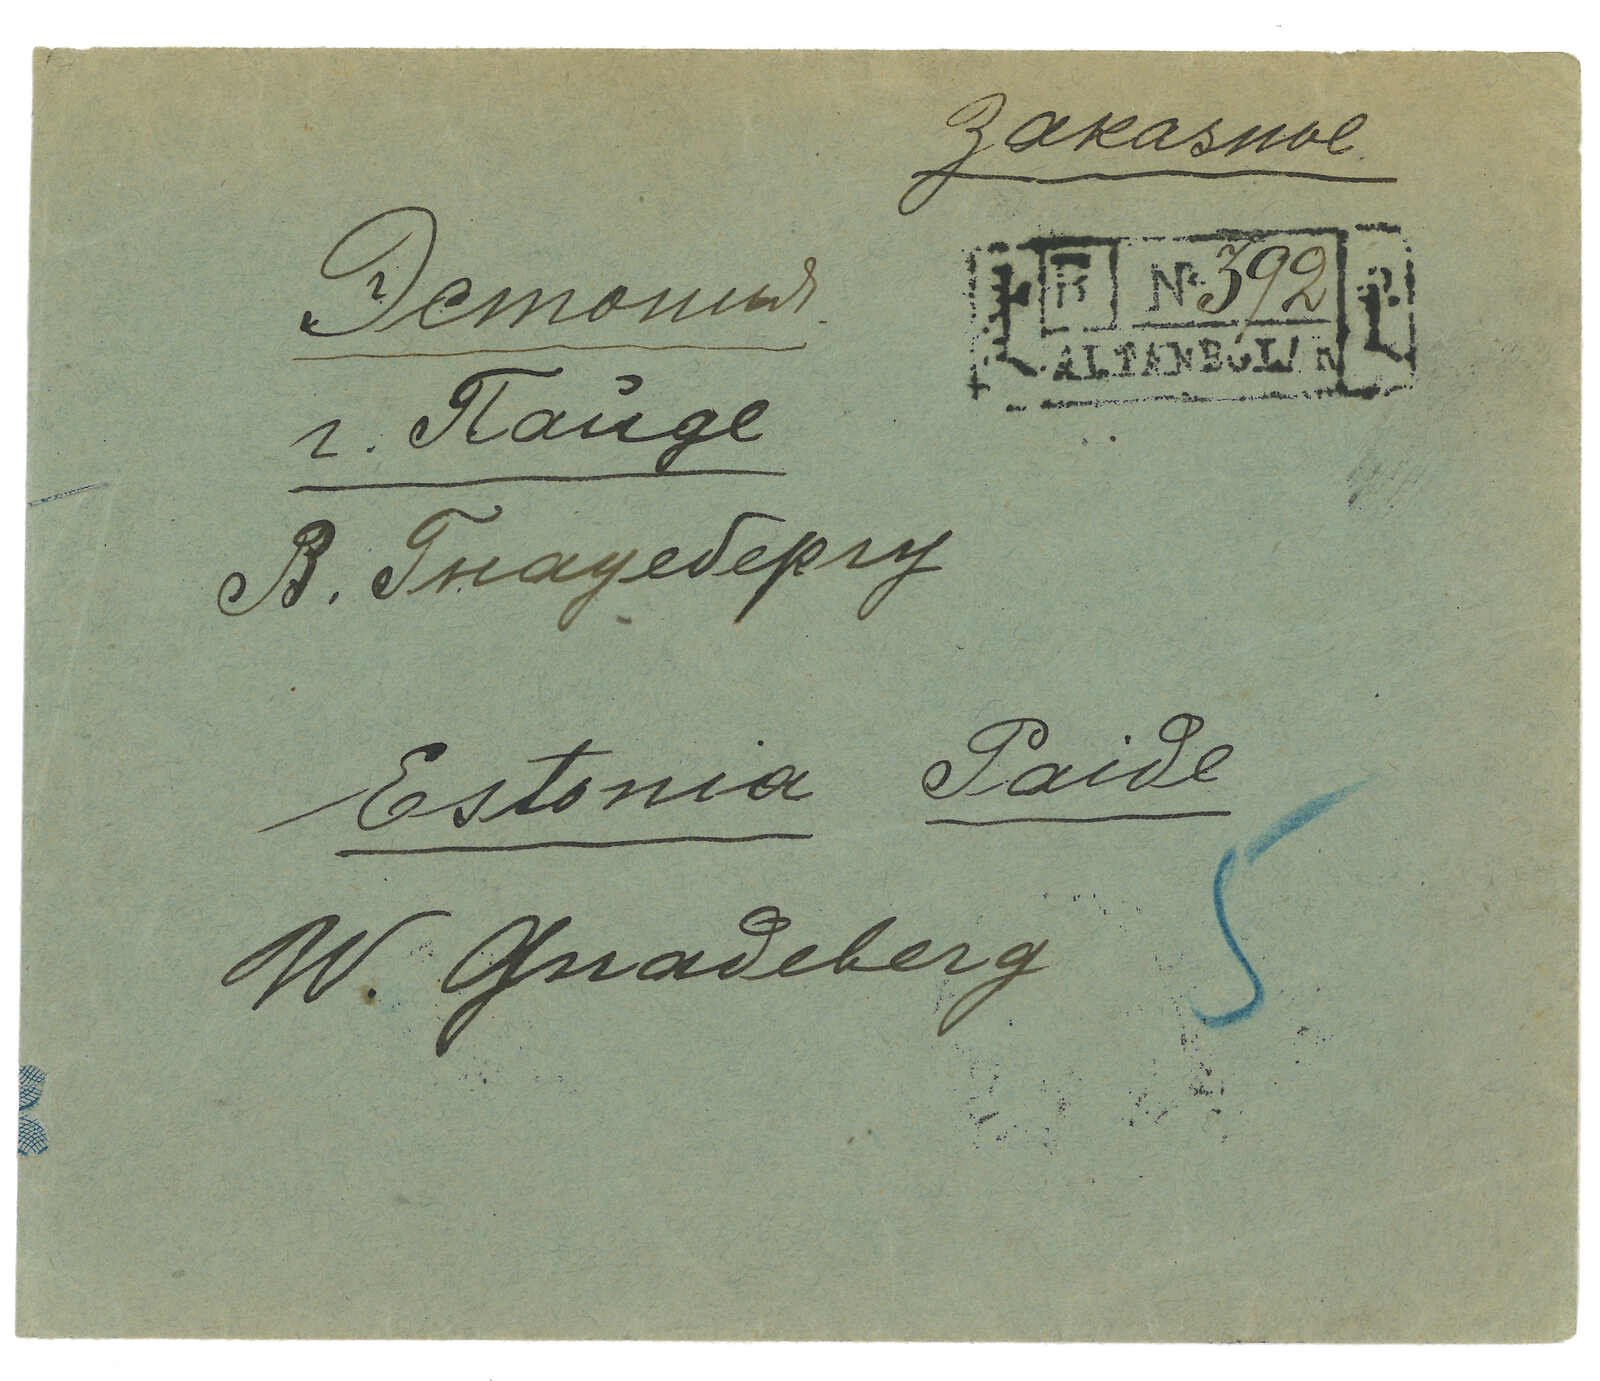 Заказное
R № 392
ALTANBÓLAK
Эстония
г. Пайде
В. Гнадебергу
Estonia Paide
W. Gnadeberg
5